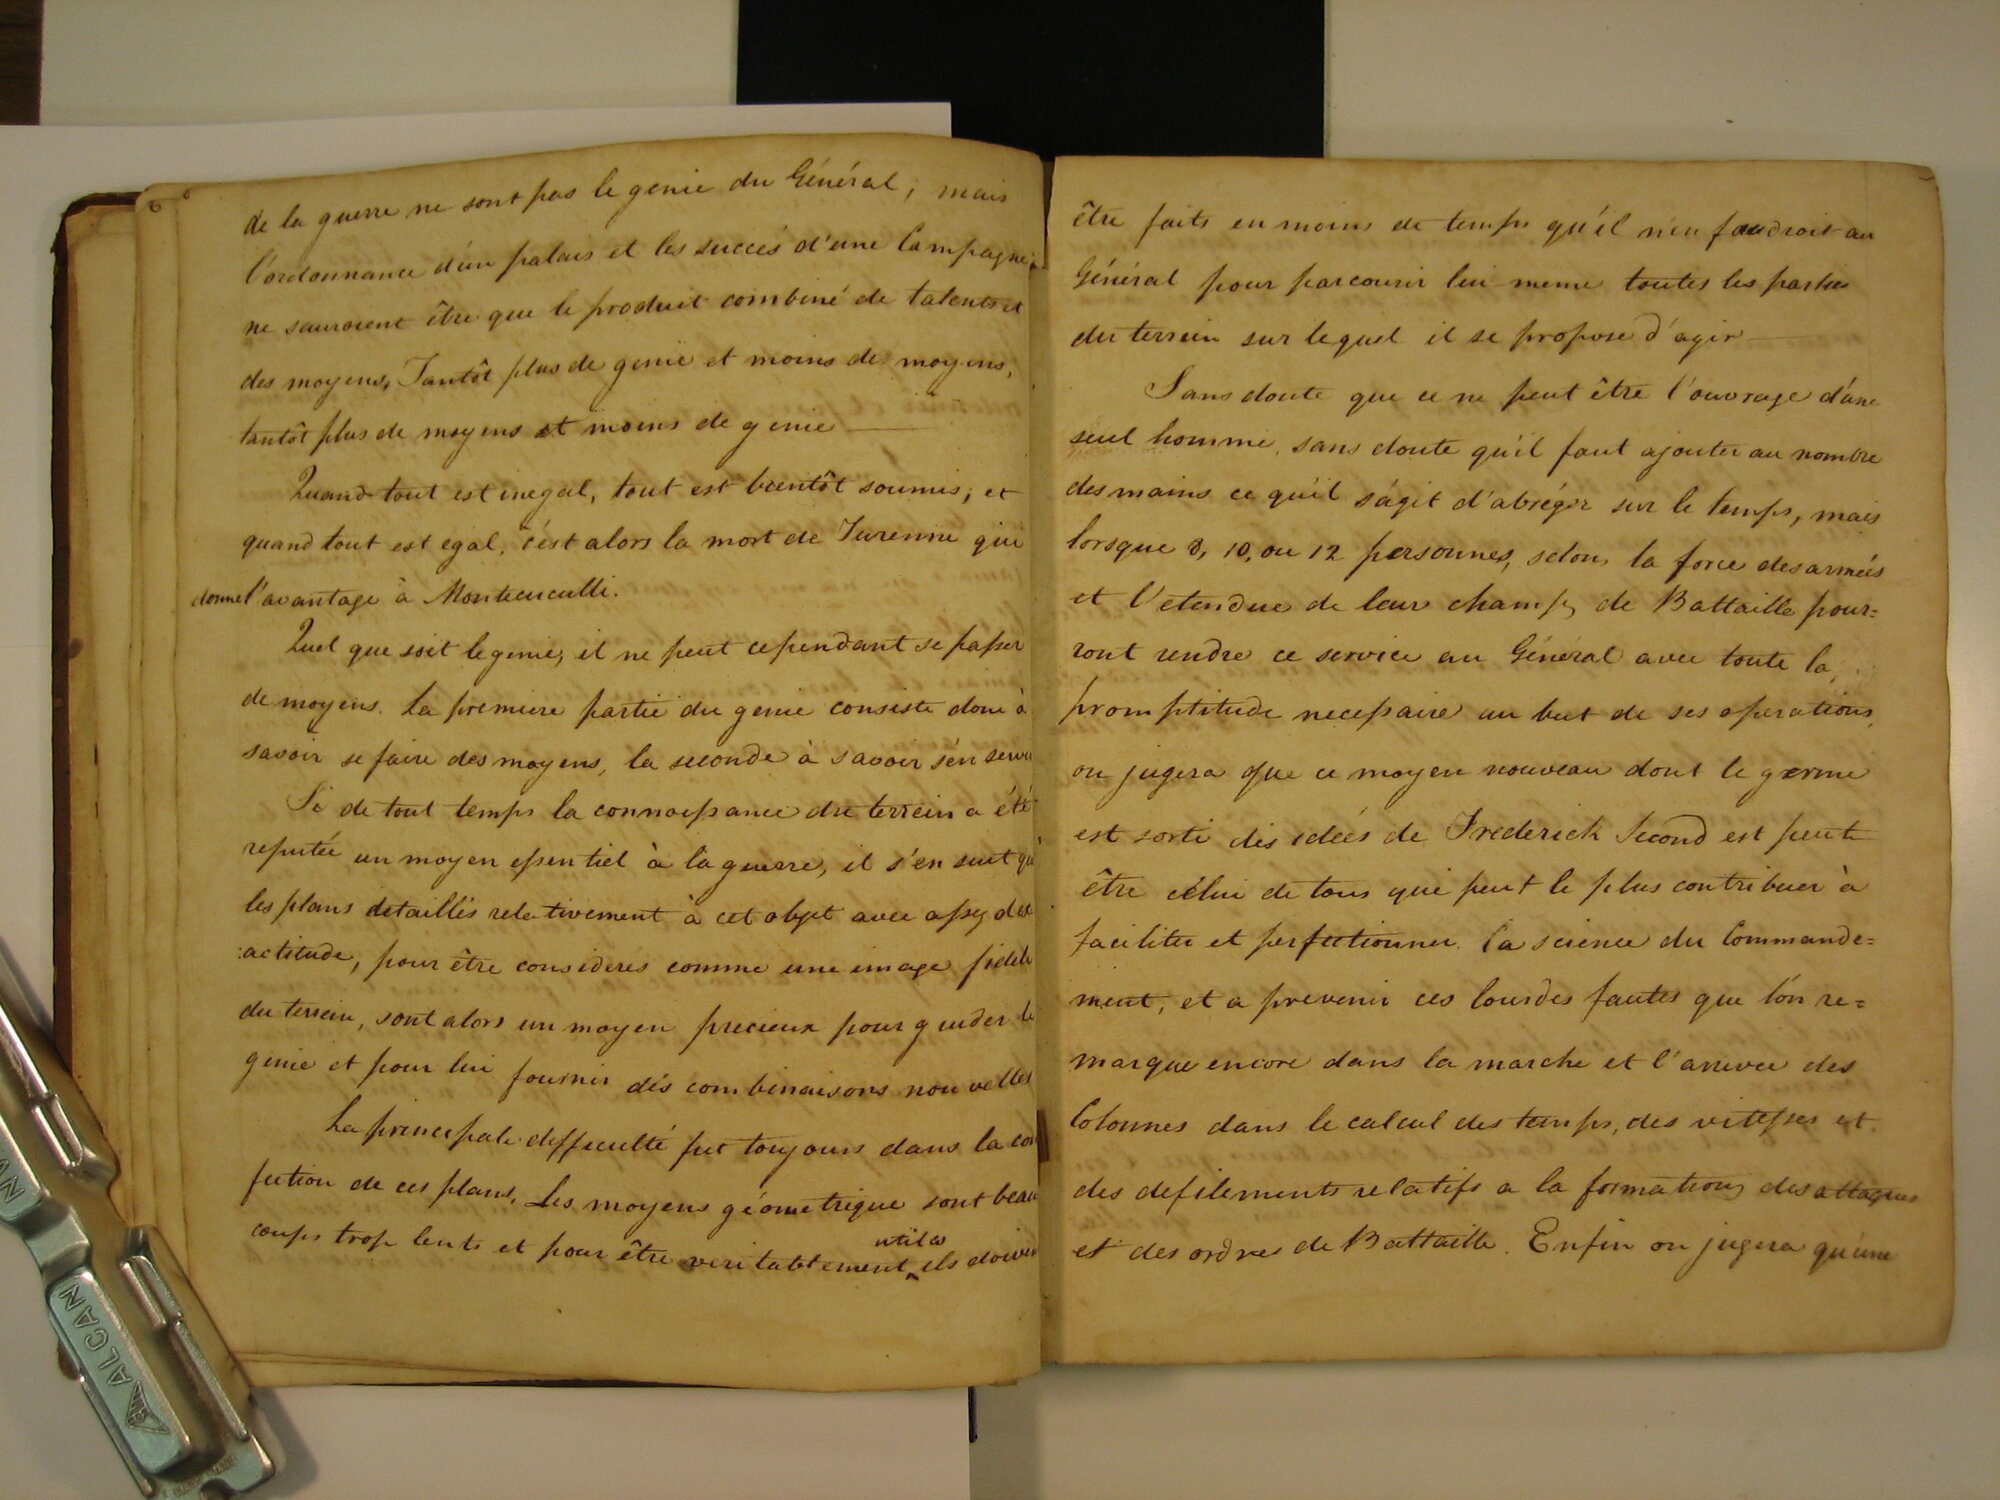 de la guerre ne sont pas le genie du Général; mais
l'ordonnance d'un palais et les succés d'une Campagne
ne sauroient être que le produit combiné de talents et
des moyens, Tantôt plus de genie et moins de moyens,
tantôt plus de moyens et moins de genie
Quand tout est inegal, tout est bientôt soumis; et
quand tout est egal, c'ést alors la mort de Turenne qui
donne l'avantage à Montecuculli.
Quel que soit le genie, il ne peut cependant se passer
de moyens. La premiere partie du genie consiste donc à
savoir se faire des moyens, la seconde à savoir s'en servir
Si de tout temps la connoissance du terrein a été
reputée un moyen essentiel à la guerre, il s'en suit que
les plans detaillés relativement à cet objet avec assez d'ex
actitude, pour être considerés comme une image fidele
du terrein, sont alors un moyen precieux pour guider le
genie et pour lui fournir dés combinaisons nouvelles
La principale difficulté fut toujours dans la con
fection de ces plans, Les moyens géometrique sont beau
coups trop lents et pour être veritablement utiles ils doivent
être faits en moins de temps qu'il n'en faudroit au
Général pour parcourir lui meme toutes les parties
du terrein sur lequel il se propose d'agir
Sans doute que ce ne peut être l'ouvrage d'une
seul homme, sans doute qu'il faut ajouter au nombre
des mains ce qu'il s'agit d'abréger sur le temps, mais
lorsque 8, 10, ou 12 personnes, selon la force des armées
et l'etendue de leur champ de Battaille pour=
ront rendre ce service au Général avec toute la
promptitude necessaire au but de ses operations,
on jugera que ce moyen nouveau dont le germe
est sorti dés idées de Frederick Second est peut
être célui de tous qui peut le plus contribuer à
faciliter et perfectionner la science du Commande=
ment, et a prevenir ces lourdes fautes que l'on re=
marque encore dans la marche et l'arrivee des
Colonnes dans le calcul des temps, des vitesses et
des defilements relatifs a la formation des attaques
et des ordres de Battaille. Enfin on jugera qu'une
ALCAN